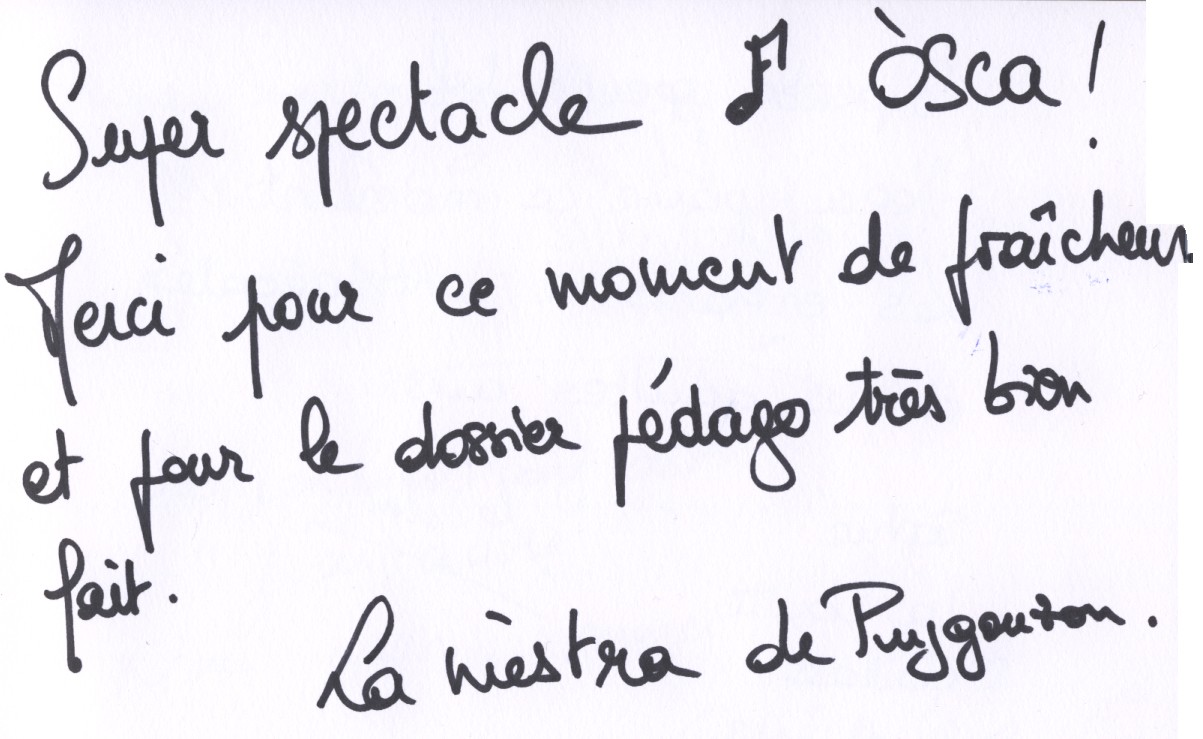 Super spectacle ♫ Òsca !
Merci pour ce moment de fraîcheur
et pour le dossier pédago très bien
fait.
La mèstra de Puygouzon.